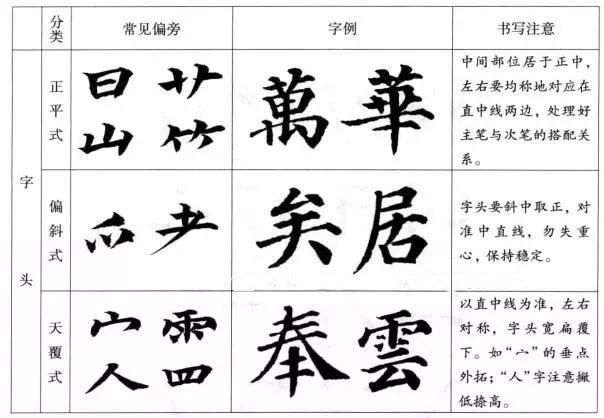 分类 常见偏旁 字例 书写注意
字头
正平式
日 艹
山 𥫗
萬 華
中间部位居于正中，
左右要均称地对应在
直中线两边，处理好
主笔与次笔的搭配关
系。
偏斜式
爫 耂
矣 居
字头要斜中取正，对
准中直线，勿失重
心，保持稳定。
天覆式
宀 ⻗
人 罒
奉 雲
以直中线为准，左右
对称，字头宽扁覆
下。如“宀”的垂点
外拓；“人”字注意撇
低捺高。